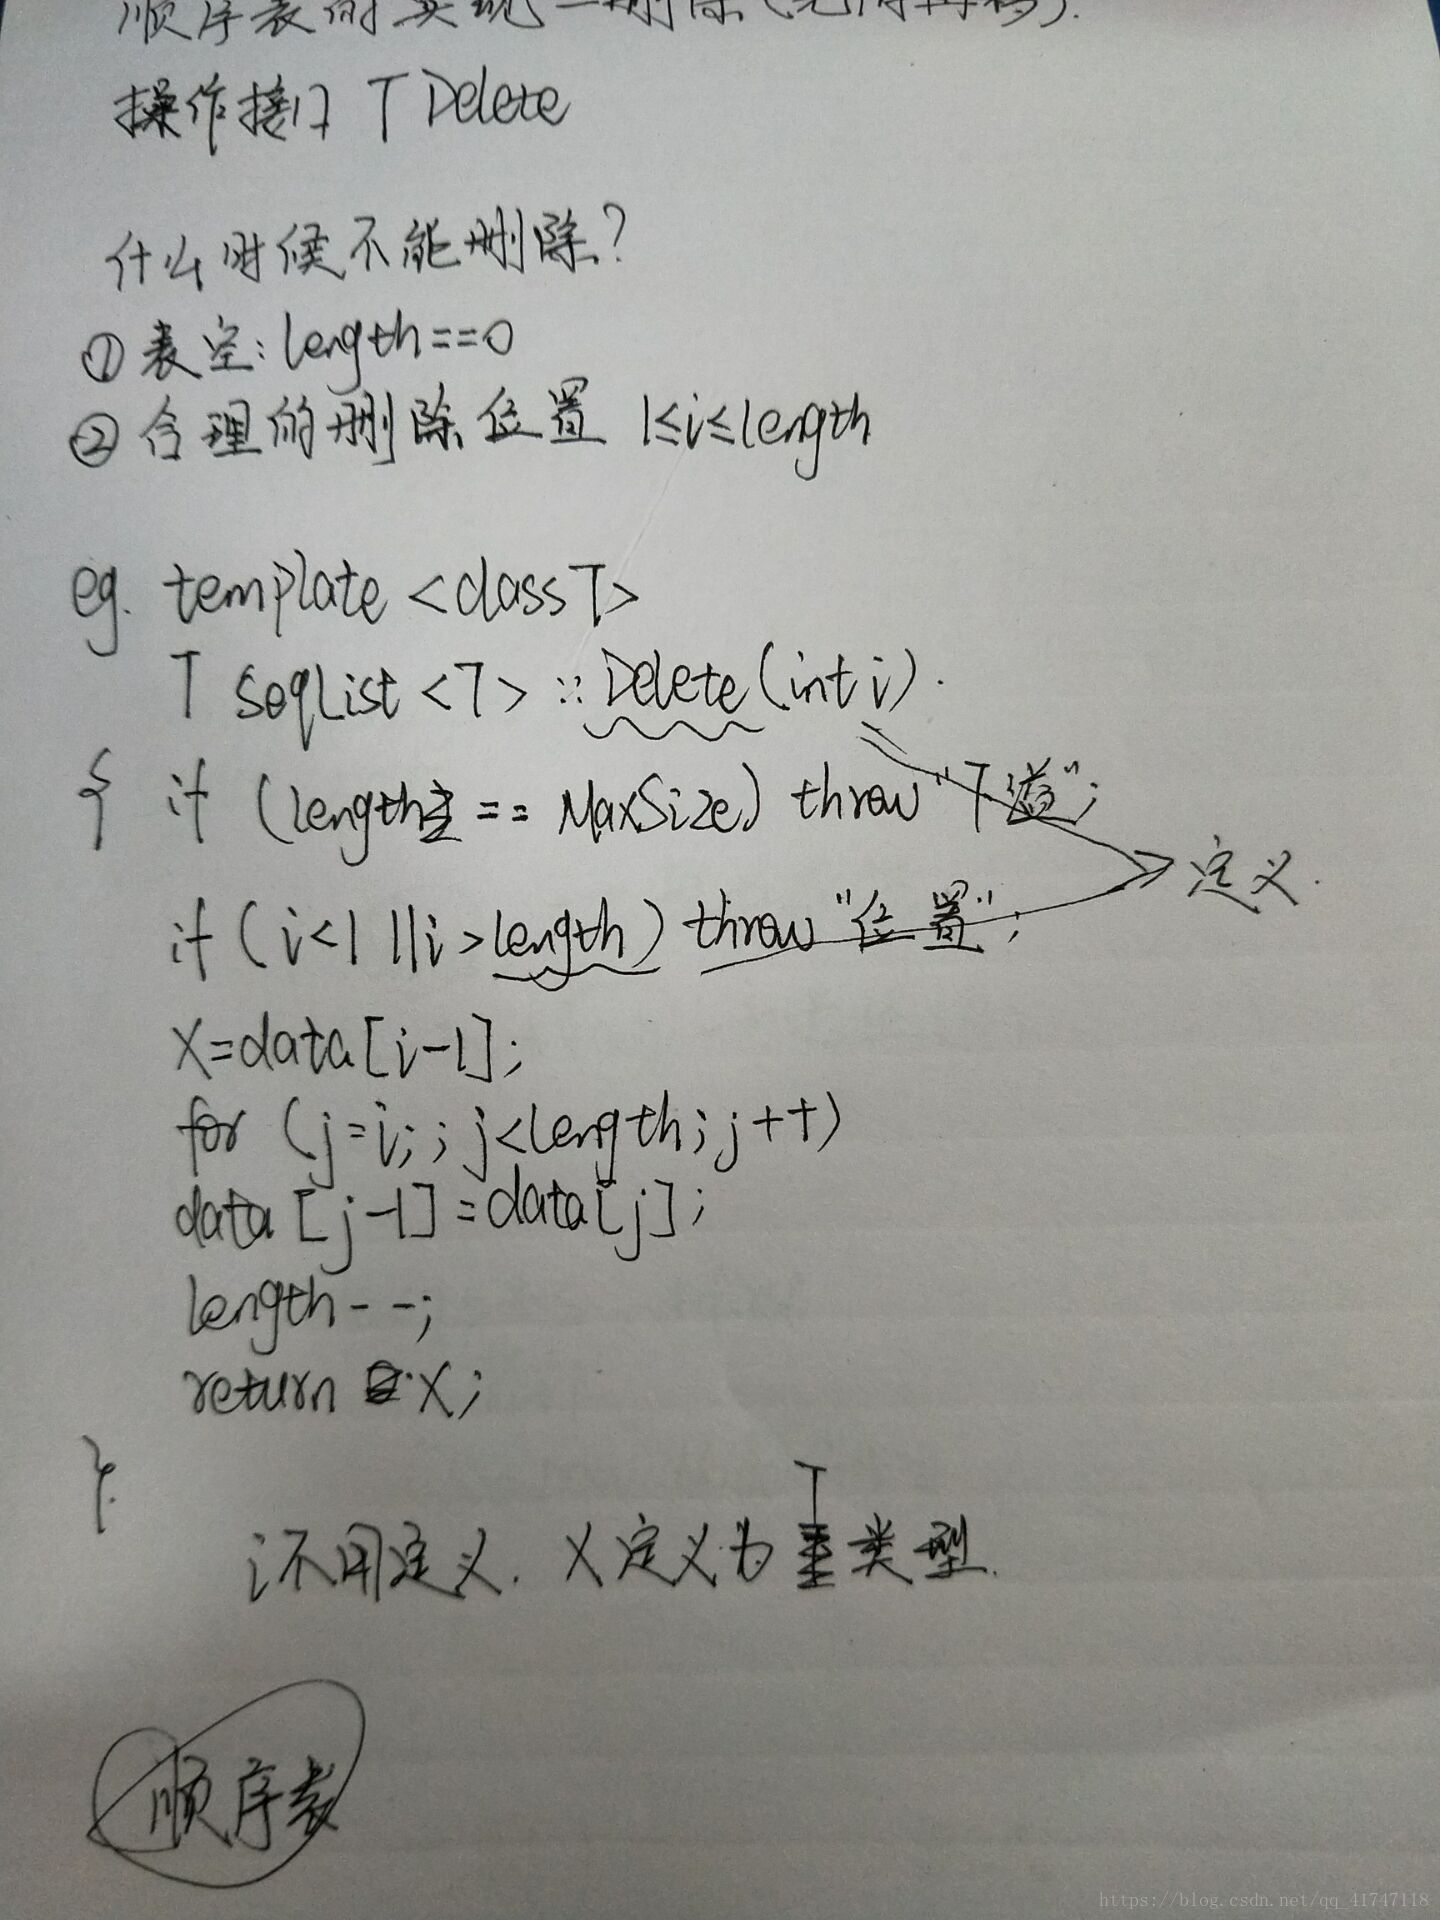 顺序表的实现一删除(先问再移).
操作接口 T Delete
什么时候不能删除?
①表空: length==0
②合理的删除位置 1≤i≤length
eg. template <class T>
T SeqList <T> :: Delete (int i).
{ if (length == MaxSize) throw "下溢";
定义.
if (i<1 || i>length) throw "位置";
X=data[i-1];
for (j=i;; j<length; j++)
data[j-1]=data[j];
length--;
return X;
}.
i不用定义. X定义为T类型.
顺序表
https://blog.csdn.net/qq_41747118